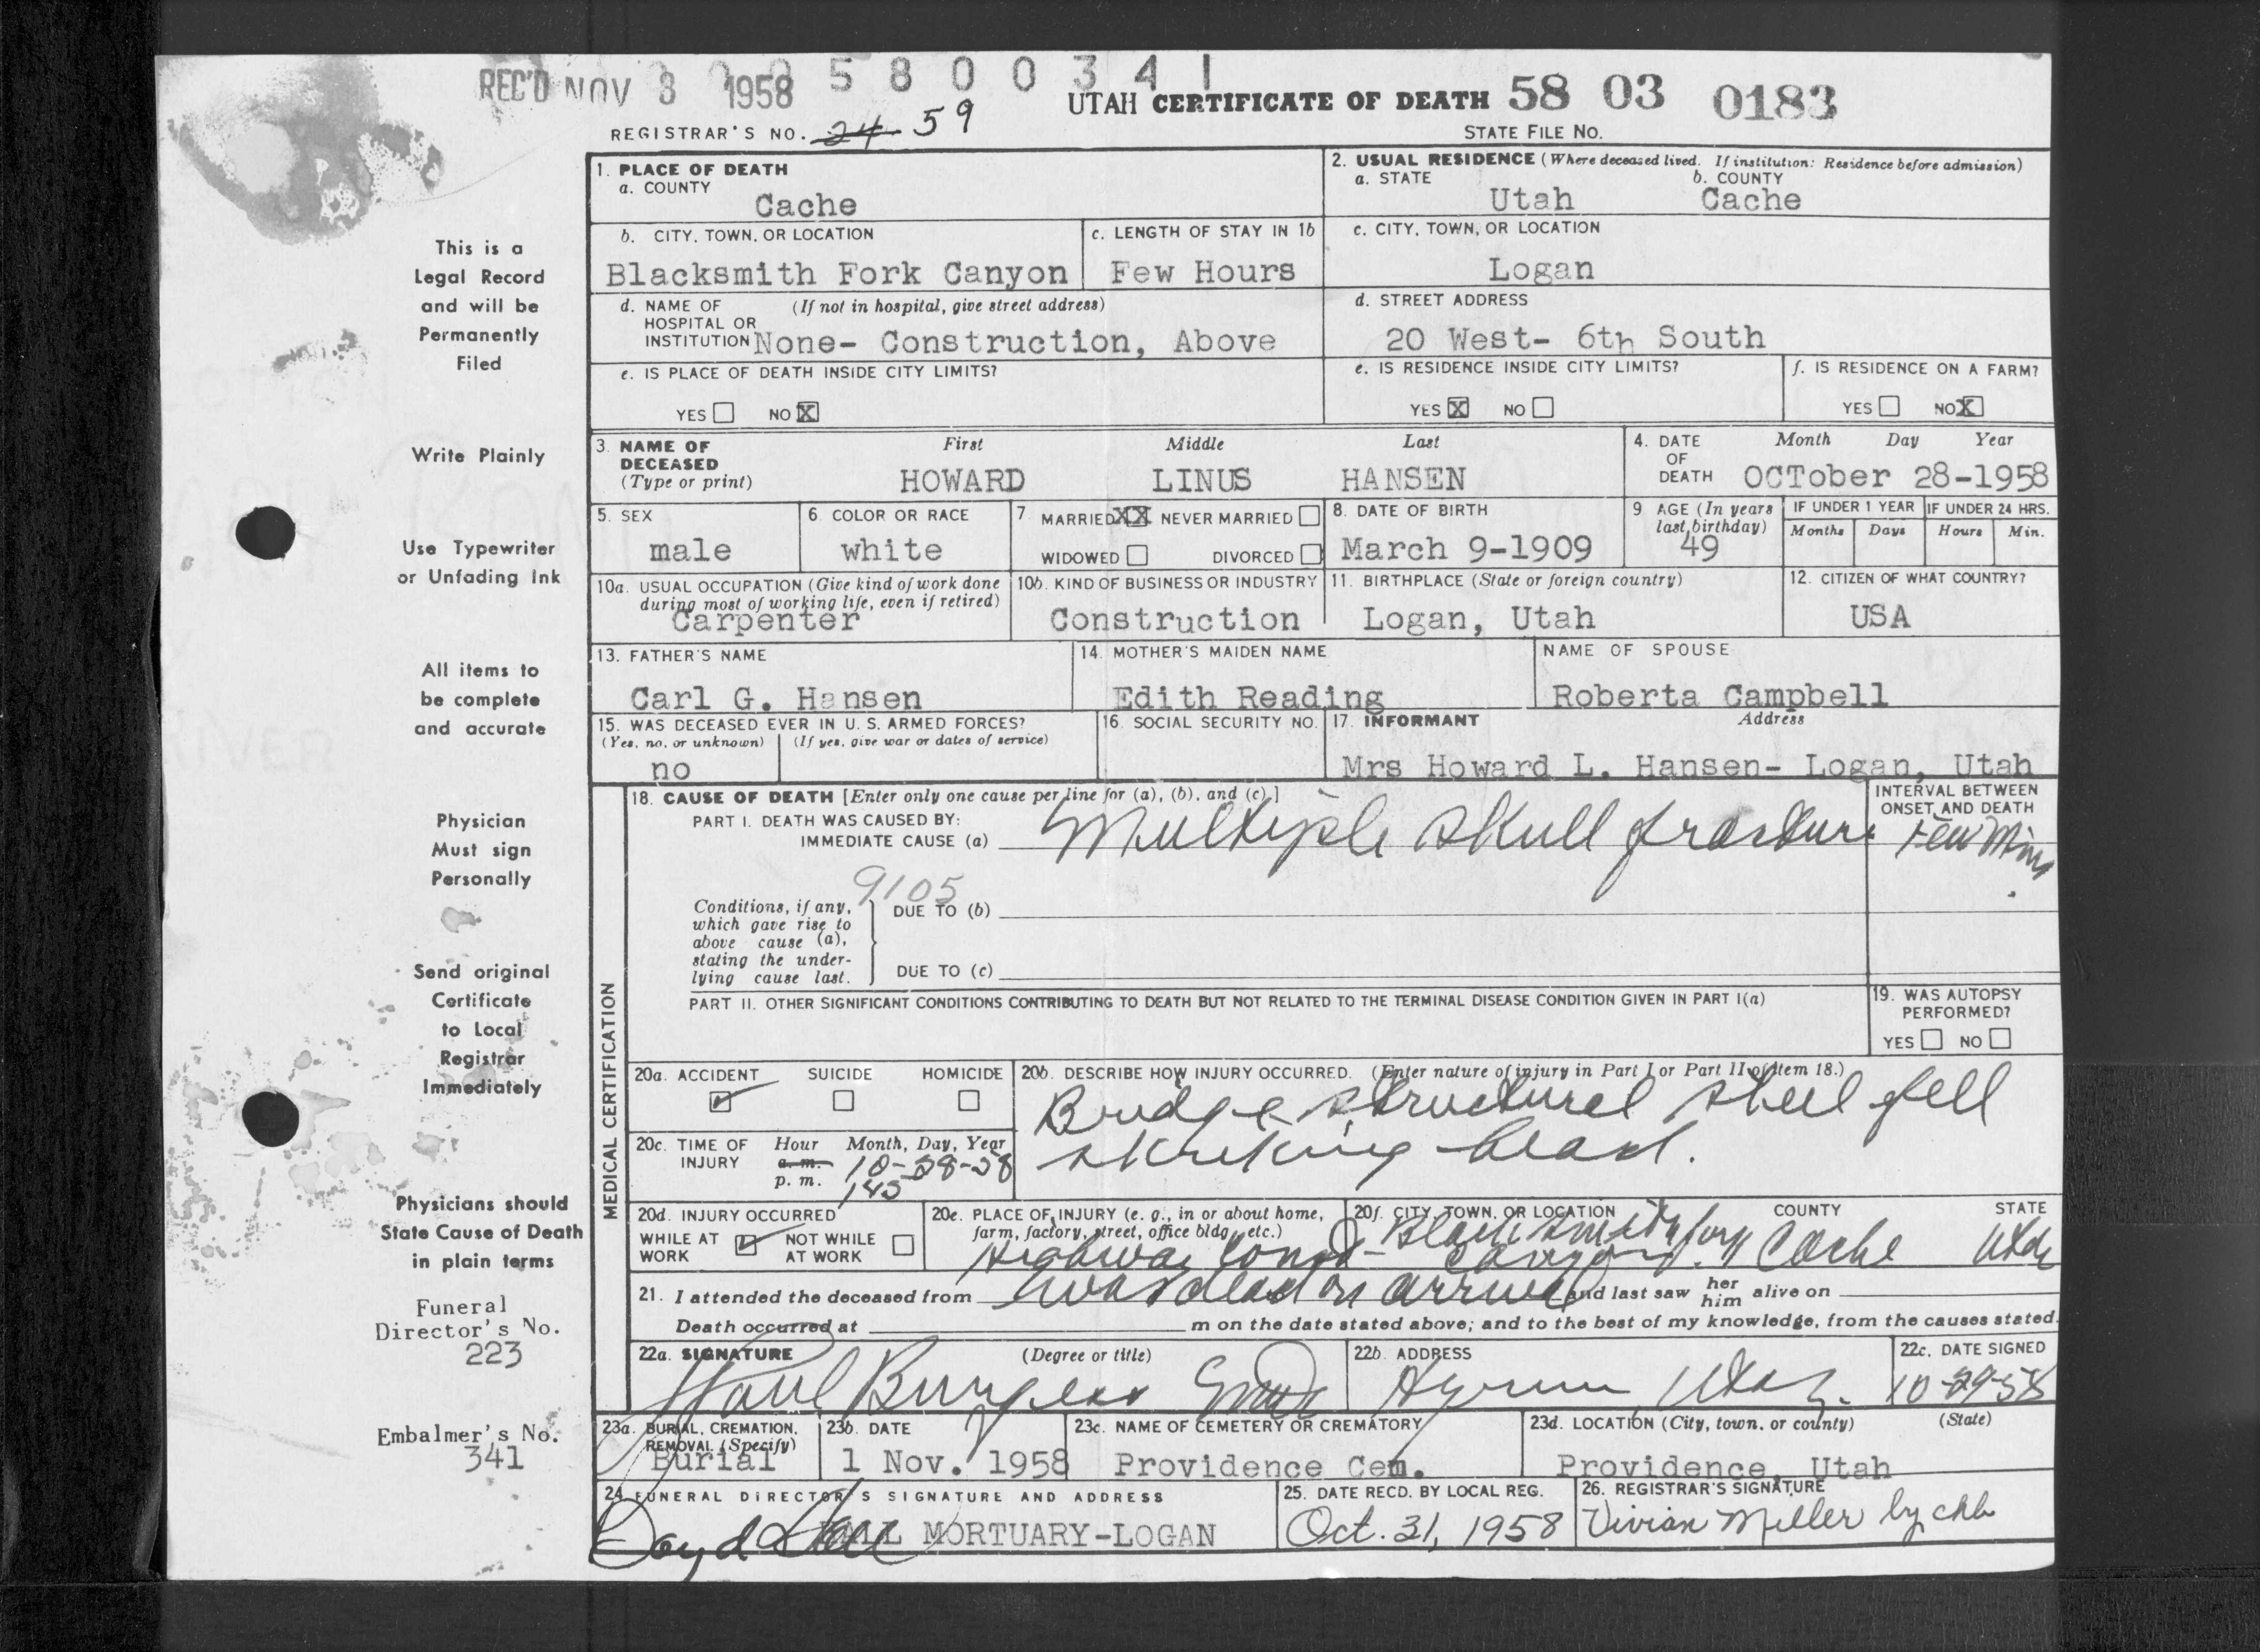 REC'D NOV 3 1958 5 8 0 0 3 4 1
UTAH CERTIFICATE OF DEATH 58 03 0183
REGISTRAR'S NO. 24 59
STATE FILE NO.
This is a
Legal Record
and will be
Permanently
Filed
Write Plainly
Use Typewriter
or Unfading Ink
All items to
be complete
and accurate
Physician
Must sign
Personally
Send original
Certificate
to Local
Registrar
Immediately
Physicians should
State Cause of Death
in plain terms
Funeral
Director's No.
223
Embalmer's No.
341
1. PLACE OF DEATH
a. COUNTY
Cache
2. USUAL RESIDENCE (Where deceased lived. If institution: Residence before admission)
a. STATE b. COUNTY
Utah Cache
b. CITY, TOWN, OR LOCATION
Blacksmith Fork Canyon
c. LENGTH OF STAY IN 1b
Few Hours
c. CITY, TOWN, OR LOCATION
Logan
d. NAME OF (If not in hospital, give street address)
HOSPITAL OR
INSTITUTION None- Construction, Above
d. STREET ADDRESS
20 West- 6th South
e. IS PLACE OF DEATH INSIDE CITY LIMITS?
YES NO X
e. IS RESIDENCE INSIDE CITY LIMITS?
YES X NO
f. IS RESIDENCE ON A FARM?
YES NO X
3. NAME OF DECEASED
(Type or print)
First Middle Last
HOWARD LINUS HANSEN
4. DATE OF DEATH
Month Day Year
OCTober 28-1958
5. SEX
male
6. COLOR OR RACE
white
7 MARRIED XX NEVER MARRIED
WIDOWED DIVORCED
8. DATE OF BIRTH
March 9-1909
9 AGE (In years
last birthday)
49
IF UNDER 1 YEAR IF UNDER 24 HRS.
Months Days Hours Min.
10a. USUAL OCCUPATION (Give kind of work done
during most of working life, even if retired)
Carpenter
10b. KIND OF BUSINESS OR INDUSTRY
Construction
11. BIRTHPLACE (State or foreign country)
Logan, Utah
12. CITIZEN OF WHAT COUNTRY?
USA
13. FATHER'S NAME
Carl G. Hansen
14. MOTHER'S MAIDEN NAME
Edith Reading
NAME OF SPOUSE
Roberta Campbell
15. WAS DECEASED EVER IN U. S. ARMED FORCES?
(Yes, no, or unknown) (If yes, give war or dates of service)
no
16. SOCIAL SECURITY NO.
17. INFORMANT Address
Mrs Howard L. Hansen- Logan, Utah
MEDICAL CERTIFICATION
18. CAUSE OF DEATH [Enter only one cause per line for (a), (b), and (c).]
PART I. DEATH WAS CAUSED BY:
IMMEDIATE CAUSE (a) Multiple skull fracture
INTERVAL BETWEEN
ONSET AND DEATH
Few Mins
9105
Conditions, if any,
which gave rise to
above cause (a),
stating the under-
lying cause last.
DUE TO (b)
DUE TO (c)
PART II. OTHER SIGNIFICANT CONDITIONS CONTRIBUTING TO DEATH BUT NOT RELATED TO THE TERMINAL DISEASE CONDITION GIVEN IN PART I(a)
19. WAS AUTOPSY
PERFORMED?
YES NO
20a. ACCIDENT SUICIDE HOMICIDE
20b. DESCRIBE HOW INJURY OCCURRED. (Enter nature of injury in Part I or Part II of Item 18.)
Bridge structural steel fell
striking head.
20c. TIME OF INJURY
Hour Month, Day, Year
a. m. 10-28-58
p. m. 145
20d. INJURY OCCURRED
WHILE AT WORK NOT WHILE AT WORK
20e. PLACE OF INJURY (e. g., in or about home,
farm, factory, street, office bldg., etc.)
Highway const
20f. CITY, TOWN, OR LOCATION COUNTY STATE
Blacksmith fork Canyon. Cache Utah
21. I attended the deceased from was dead on arrival and last saw her him alive on
Death occurred at m on the date stated above; and to the best of my knowledge, from the causes stated.
22a. SIGNATURE (Degree or title)
Paul Burgess
22b. ADDRESS
Hyrum Utah.
22c. DATE SIGNED
10-29-58
23a. BURIAL, CREMATION,
REMOVAL (Specify)
Burial
23b. DATE
1 Nov. 1958
23c. NAME OF CEMETERY OR CREMATORY
Providence Cem.
23d. LOCATION (City, town, or county) (State)
Providence, Utah
24 FUNERAL DIRECTOR'S SIGNATURE AND ADDRESS
HALL MORTUARY-LOGAN
25. DATE RECD. BY LOCAL REG.
Oct. 31, 1958
26. REGISTRAR'S SIGNATURE
Vivian Miller by chb